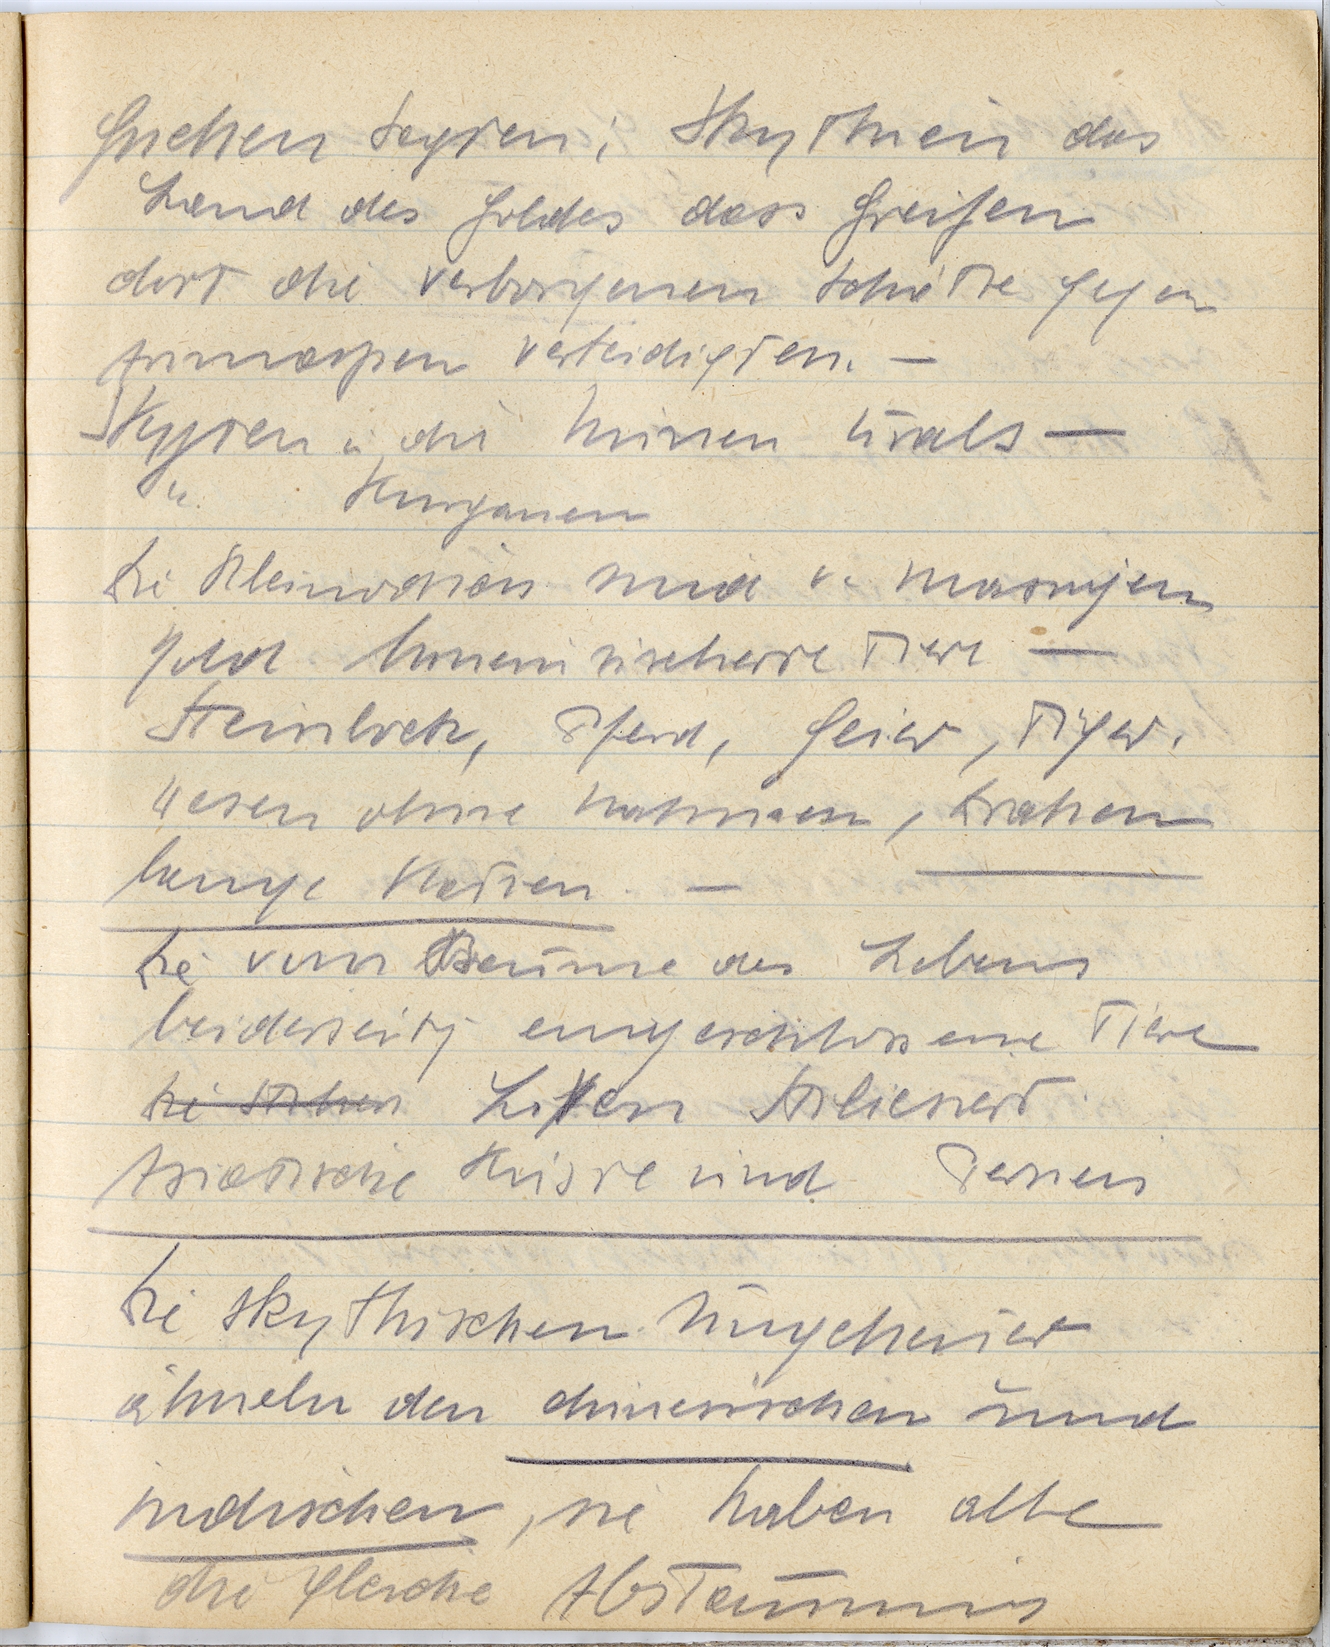 Griechen sagten: Skythien das
Land des Goldes dass Greifen
dort die verborgenen Schätze gegen
Arimaspen verteidigten. —
Skyten u. die Minen Urals —
" Kurganen
Die Kleinodien sind v. massigen
Gold Tiere —
Steinbock, Pferd, Geier, Tiger.
Wesen ohne Nahmen, Drachen
lange Katzen. —
Die vom Baume des Lebens
beiderseits eingeschlossene Tiere
Die Löwen Stilisiert
Asiatische Küste und Persien
Die skythischen Ungeheuer
ähneln den chinesischen und
indischen, sie haben alle
die gleiche Abstammung